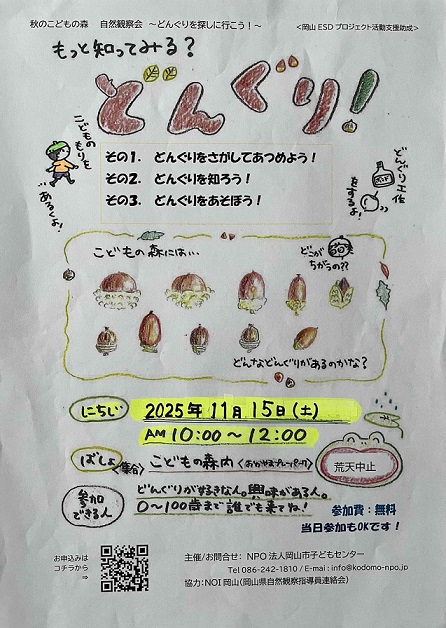 秋のこどもの森　自然観察会　～どんぐりを探しに行こう！～　<岡山 ESD プロジェクト活動支援助成>
もっと知ってみる？
どんぐり!
こどものもりをあるくよ!
その1.　どんぐりをさがしてあつめよう！
その2.　どんぐりを知ろう！
その3.　どんぐりをあそぼう！
どんぐり工作をするよ!
こどもの森には…
どこがちがうの??
どんなどんぐりがあるのかな？
にちじ　2025年11月15日(土)
AM 10:00～12:00
ばしょ<集合>　こどもの森内
荒天中止
参加できる人
どんぐりが好きな人。興味がある人。
0～100歳まで誰でも来てね!
参加費：無料
当日参加もOKです！
お申込みはコチラから⇒
主催/お問合せ：NPO 法人岡山市子どもセンター
Tel 086-242-1810 / E-mai : info@kodomo-npo.jp
協力：NOI 岡山(岡山県自然観察指導員連絡会)